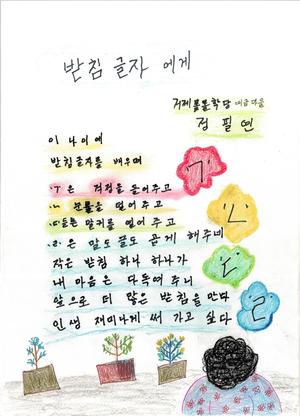 받침 글자 에게
거제볼볼학당
정필연
이 나이에
받침글자를 배우며
ㄱ은 걱정을 들어주고
ㄴ는 눈물을 덜어주고
ㄷ은 말귀를 열어 주고
ㄹ은 말도 글도 곱게 해주네
작은 받침 하나 하나가
내 마음은 다독여 주니
앞으로 더 많은 받침을 만나
인생 재미나게 써 가고 싶다
ㄱ
ㄴ
ㄷ
ㄹ